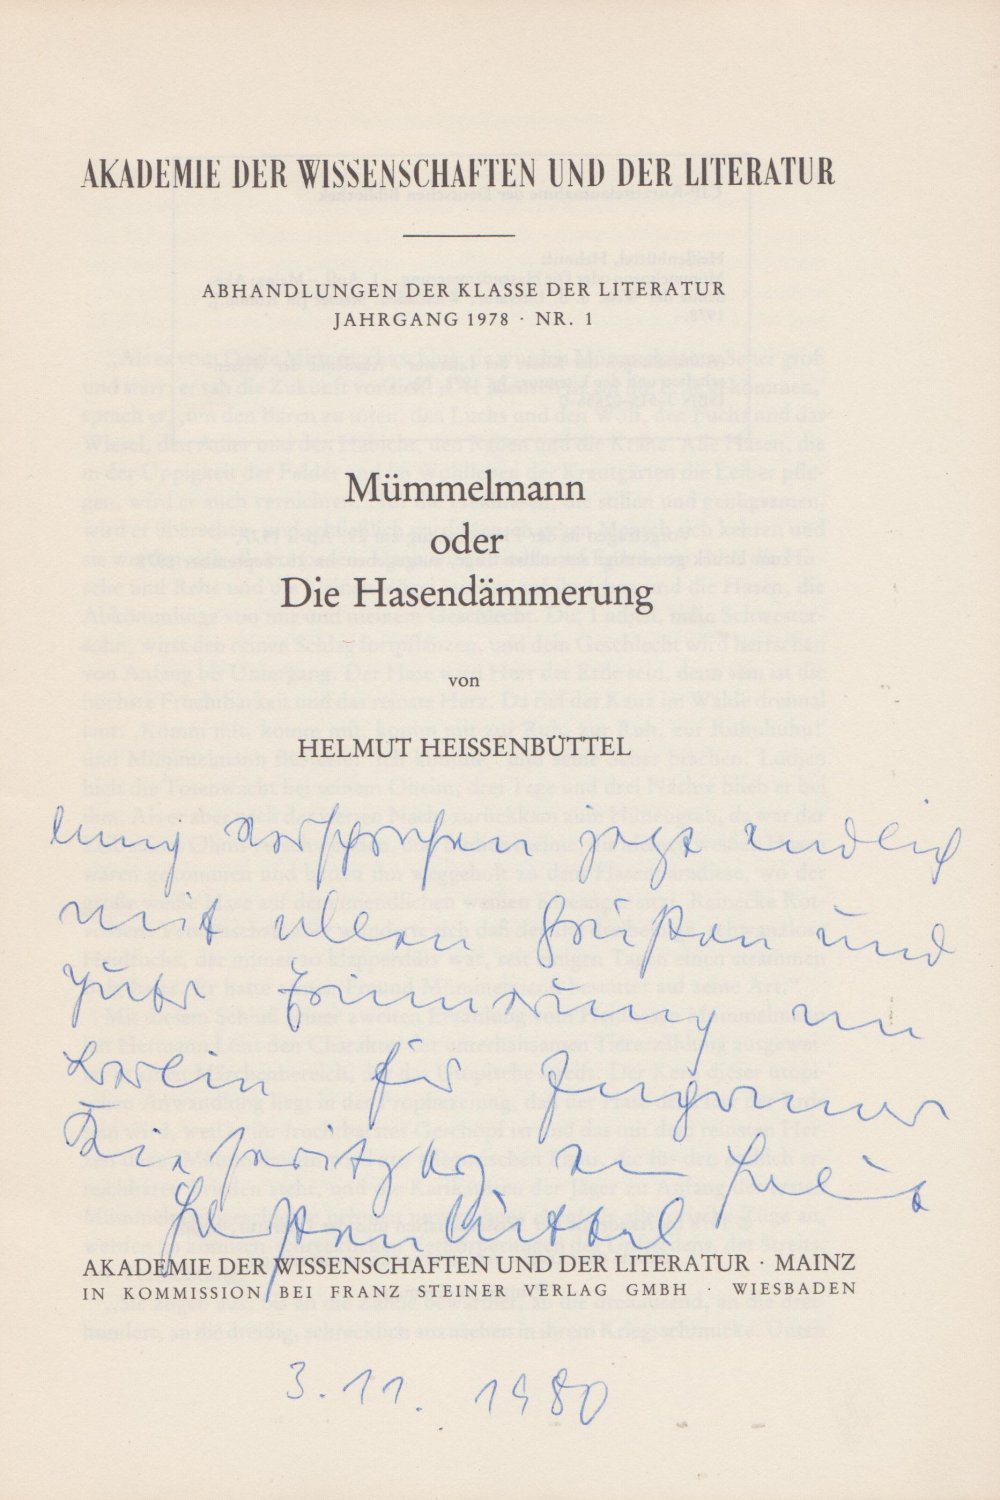 AKADEMIE DER WISSENSCHAFTEN UND DER LITERATUR
ABHANDLUNGEN DER KLASSE DER LITERATUR
JAHRGANG 1978 · NR. 1
Mümmelmann
oder
Die Hasendämmerung
von
HELMUT HEISSENBÜTTEL
lang versprochen jetzt endlich
mit allen Grüßen und
guter Erinnerung an
Berlin für Ingomar
Kieseritzky
Heißenbüttel
AKADEMIE DER WISSENSCHAFTEN UND DER LITERATUR · MAINZ
IN KOMMISSION BEI FRANZ STEINER VERLAG GMBH · WIESBADEN
3. 11. 1980